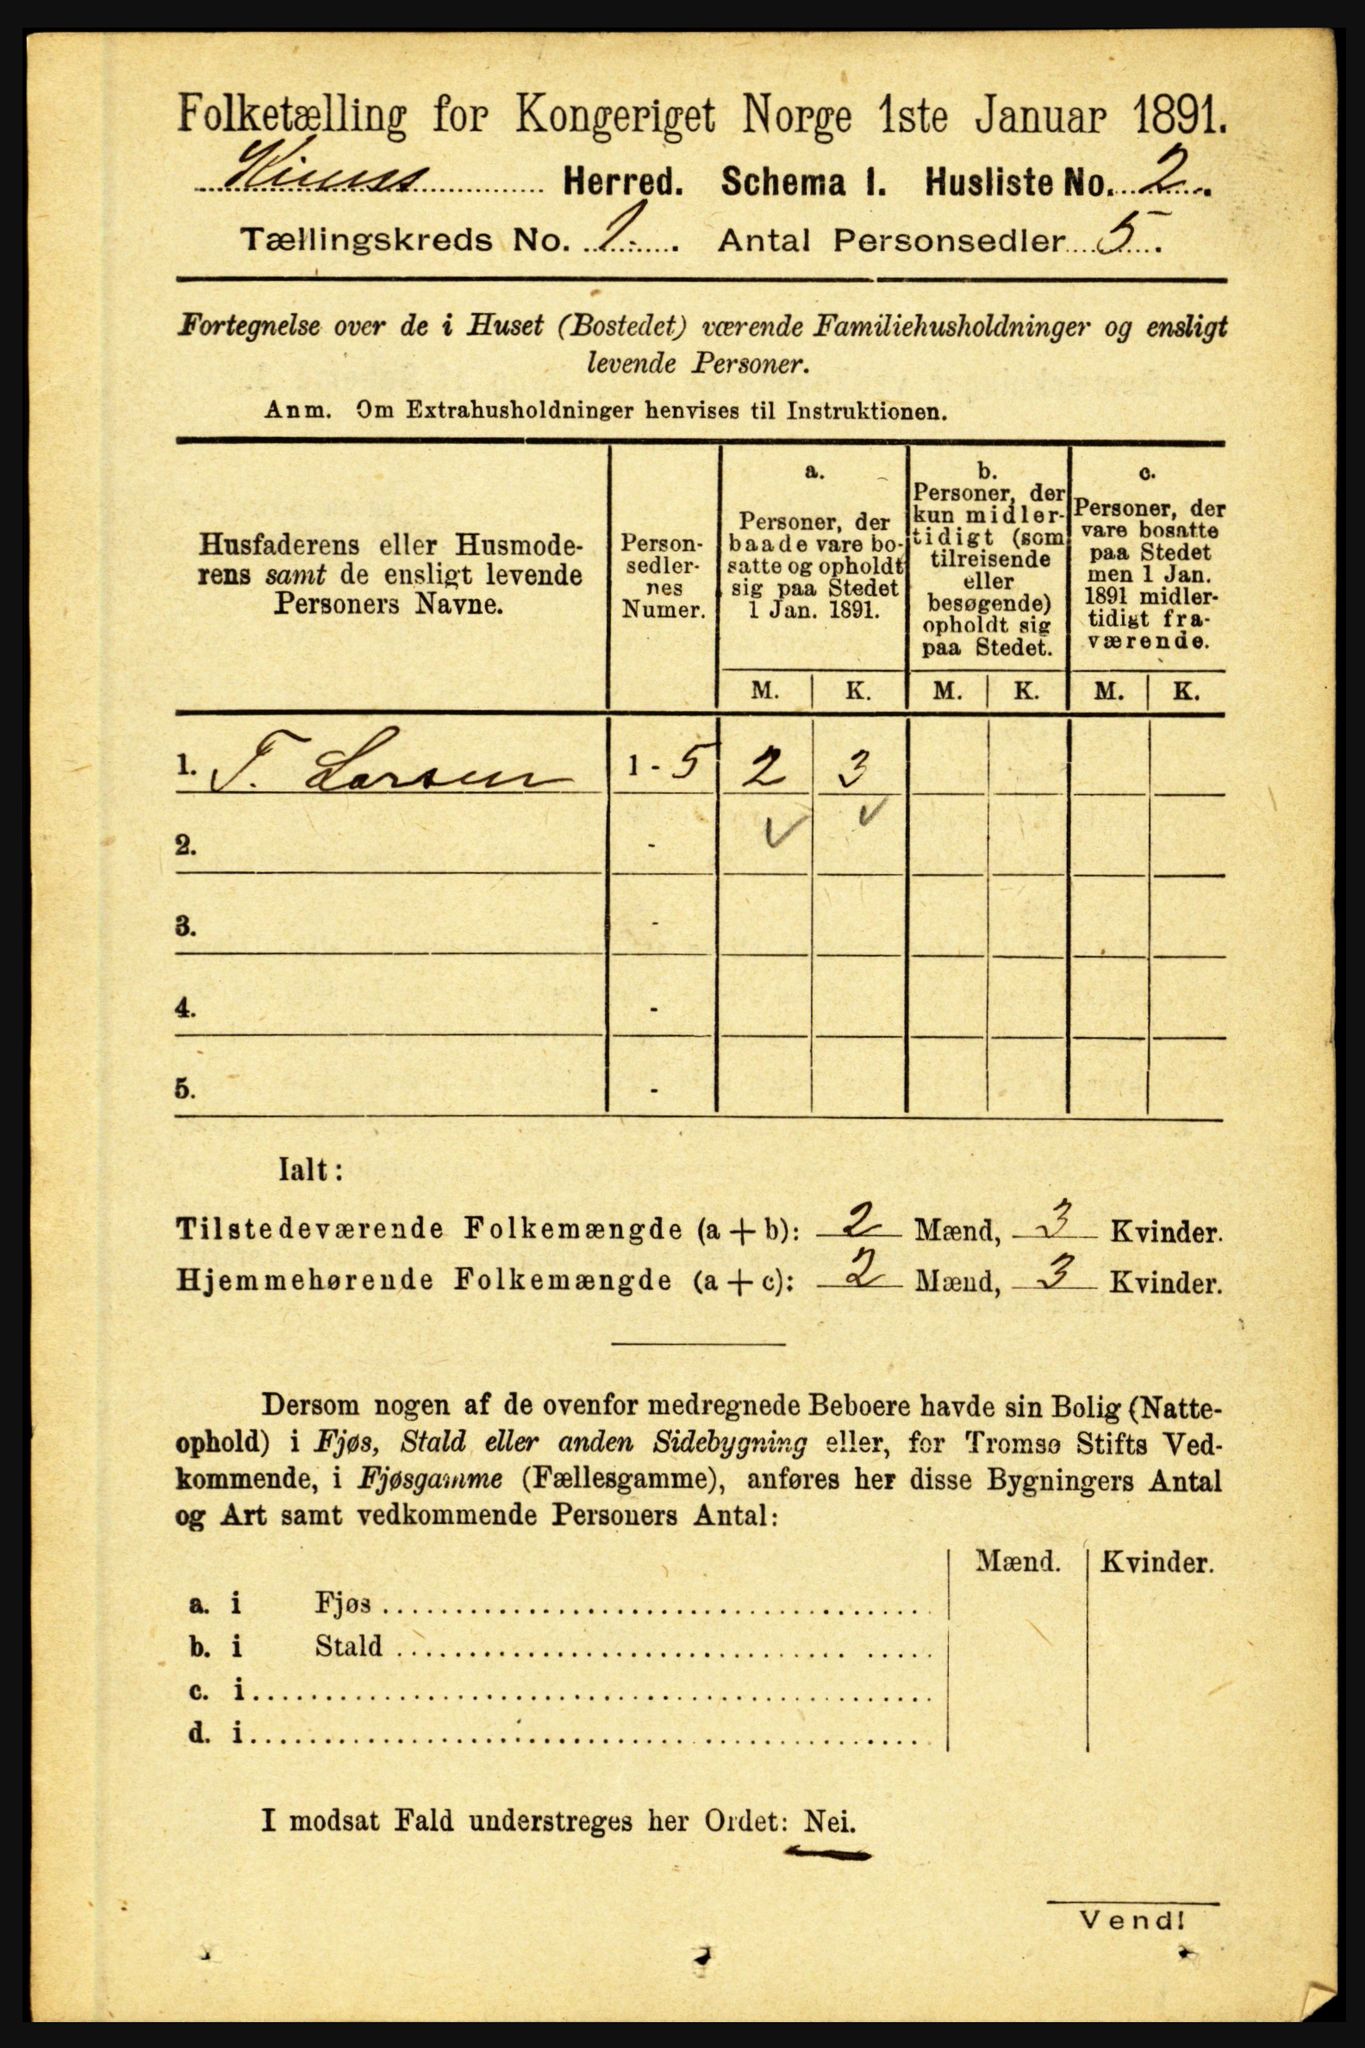 Folketælling for Kongeriget Norge 1ste Januar 1891.
Kinns Herred. Schema 1. Husliste No. 2.
Tællingskreds No. 1. Antal Personsedler 5.
Fortegnelse over de i Huset (Bostedet) værende Familiehusholdninger og ensligt
levende Personer.
Anm. Om Extrahusholdninger henvises til Instruktionen.
Husfaderens eller Husmode-
rens samt de ensligt levende
Personers Navne.
Person-
sedler-
nes
Numer.
a.
Personer, der
baade vare bo-
satte og opholdt
sig paa Stedet
1 Jan. 1891.
b.
Personer, der
kun midler-
tidigt (som
tilreisende
eller
besøgende)
opholdt sig
paa Stedet.
c.
Personer, der
vare bosatte
paa Stedet
men 1 Jan.
1891 midler-
tidigt fra-
værende.
M. K. M. K. M. K.
1. T. Larsen 1 - 5 2 3
2. -
3. -
4. -
5. -
Ialt:
Tilstedeværende Folkemængde (a + b): 2 Mænd, 3 Kvinder.
Hjemmehørende Folkemængde (a + c): 2 Mænd, 3 Kvinder.
Dersom nogen af de ovenfor medregnede Beboere havde sin Bolig (Natte-
ophold) i Fjøs, Stald eller anden Sidebygning eller, for Tromsø Stifts Ved-
kommende, i Fjøsgamme (Fællesgamme), anføres her disse Bygningers Antal
og Art samt vedkommende Personers Antal:
Mænd. Kvinder.
a. i Fjøs
b. i Stald
c. i
d. i
I modsat Fald understreges her Ordet: Nei.
Vend!